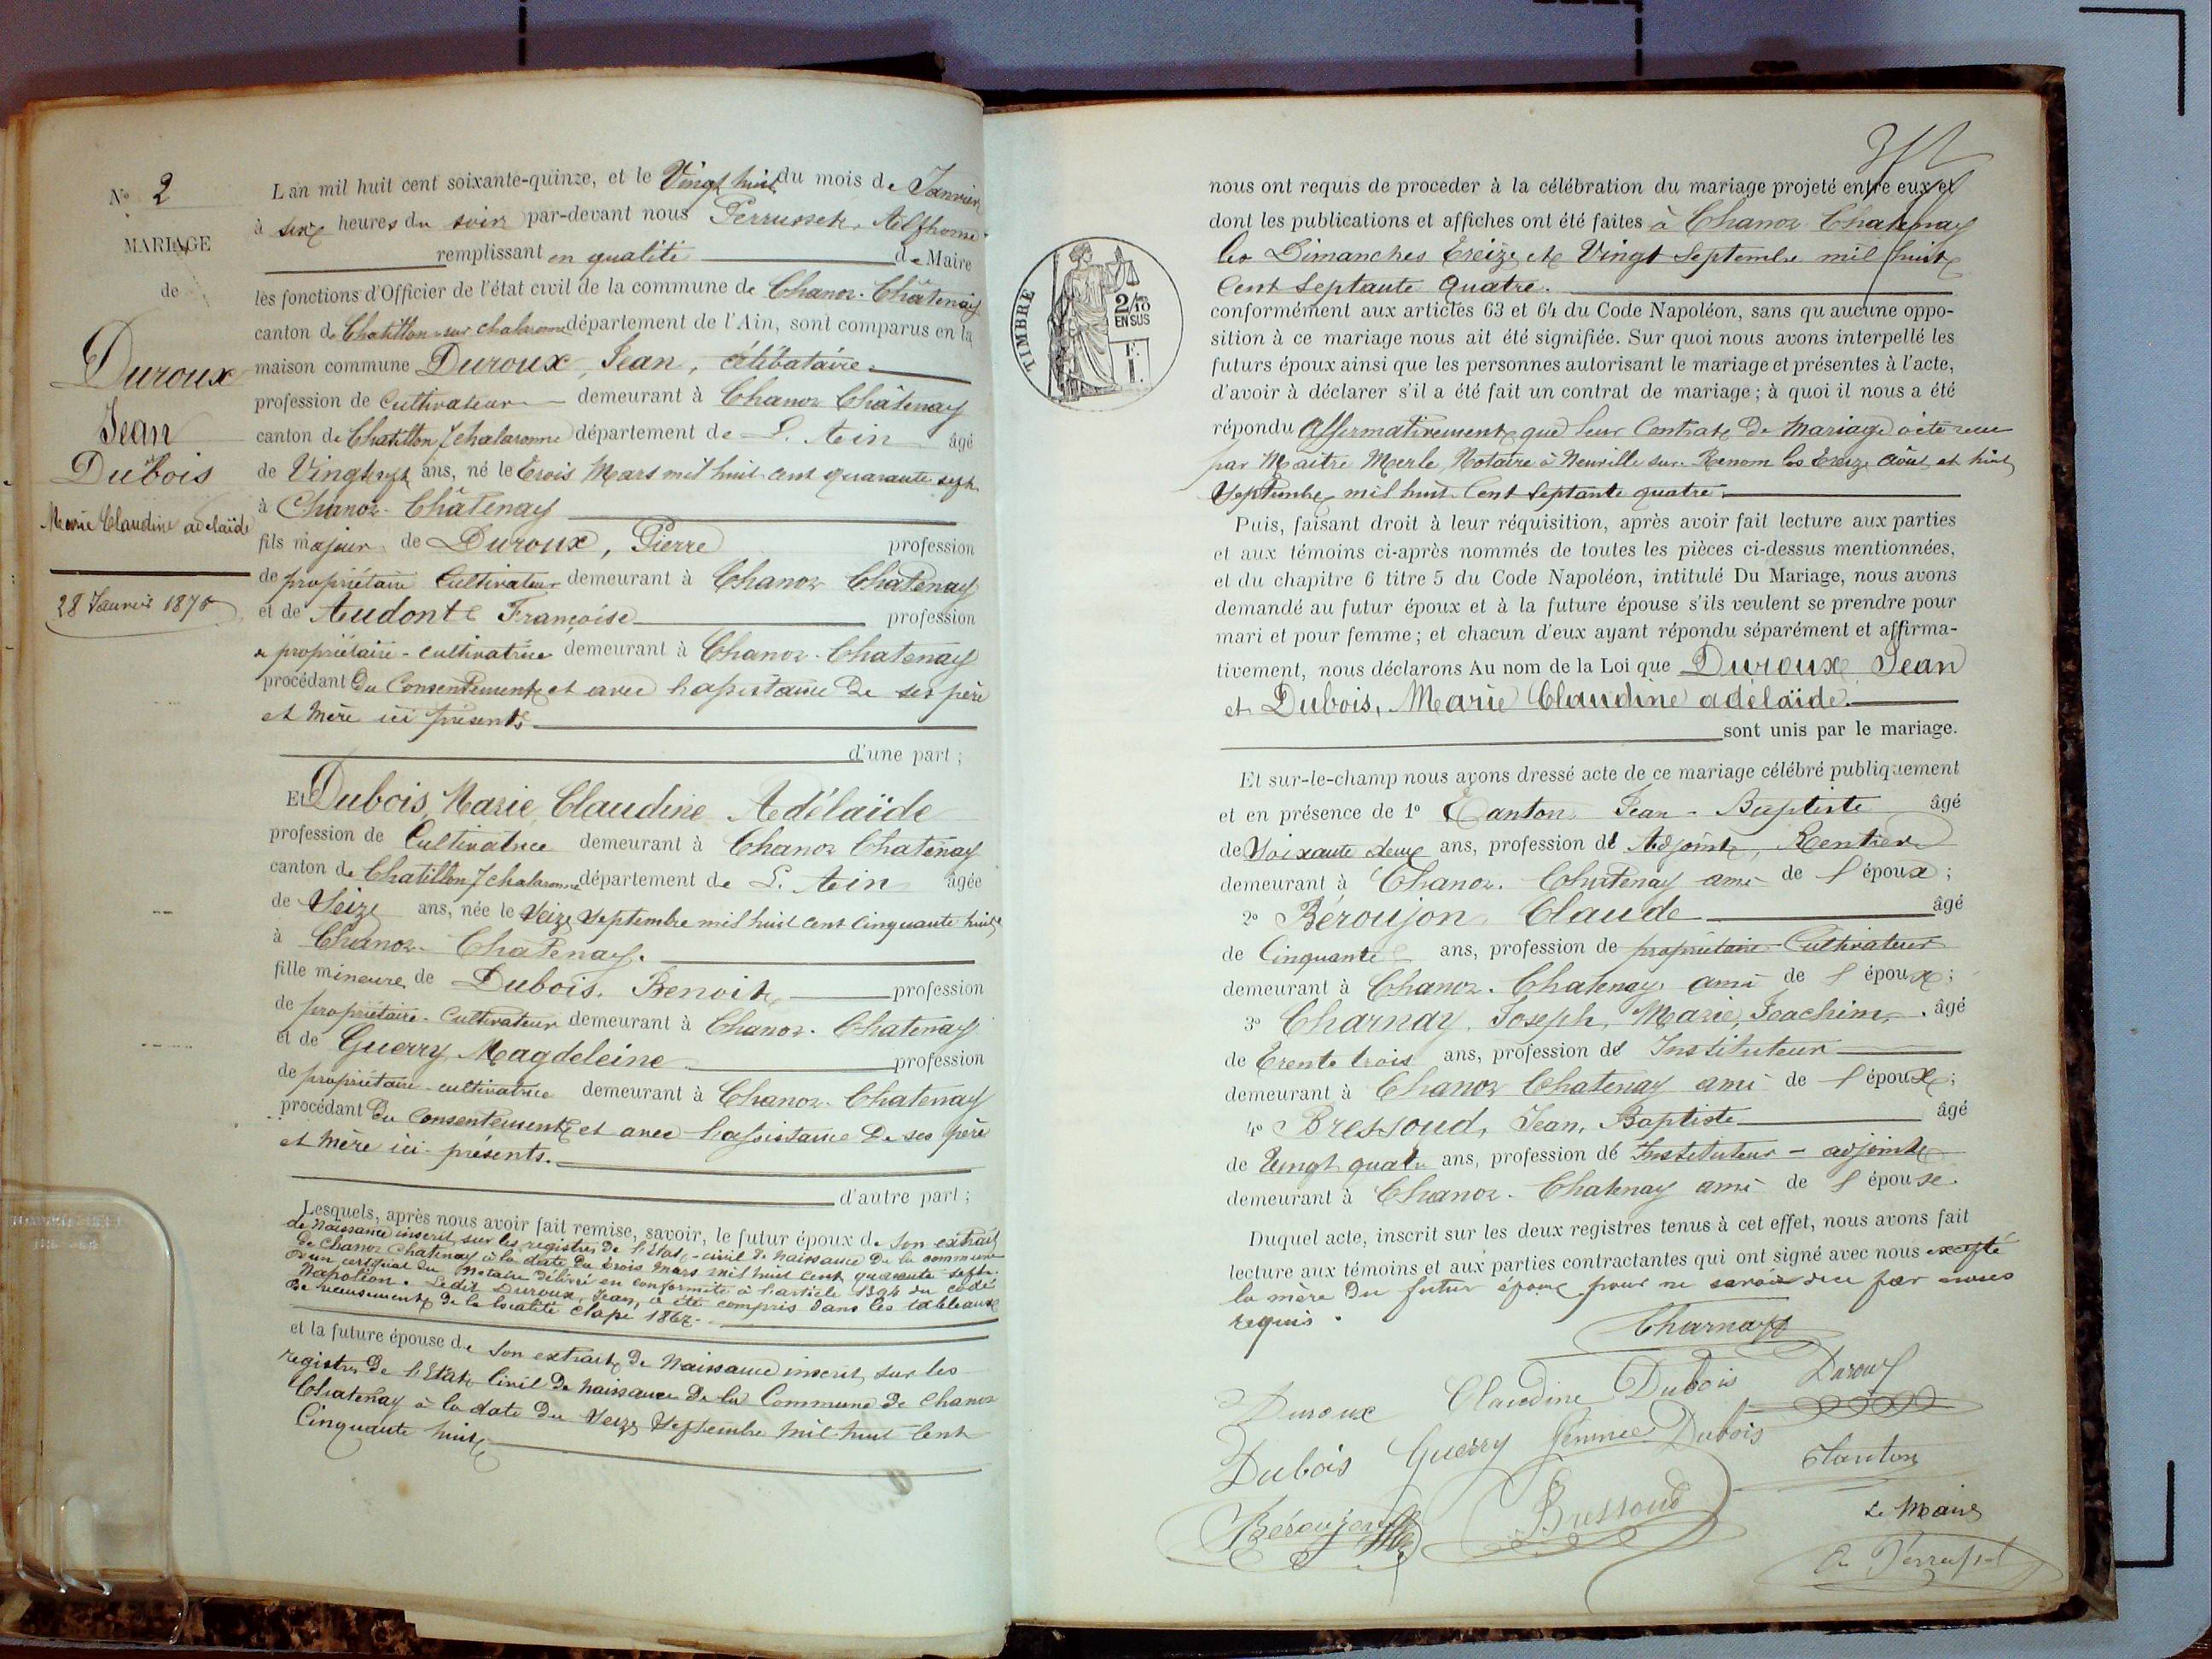 N° 2
MARIAGE
de
Duroux
Jean
et
Dubois
Marie Claudine adelaïde
28 Janvier 1875
L'an mil huit cent soixante-quinze, et le Vingt huit du mois de Janvier
à six heures du soir par-devant nous Perrusset, Alphonse
remplissant en qualité de Maire
les fonctions d'Officier de l'état civil de la commune de Chanoz-Châtenay
canton de Chatillon-sur chalaronne département de l'Ain, sont comparus en la
maison commune Duroux, Jean, célibataire.
profession de Cultivateur demeurant à Chanoz Châtenay
canton de Chatillon s/ chalaronne département de L'Ain âgé
de Vingt sept ans, né le Trois Mars mil huit cent quarante sept
à Chanoz-Châtenay
fils majeur de Duroux, Pierre profession
de propriétaire Cultivateur demeurant à Chanoz Chatenay
et de Audont Françoise profession
de propriétaire-cultivatrice demeurant à Chanoz-Chatenay
procédant Du Consentement et avec l'assistance De ses père
et Mère ici présents.
d'une part;
Et Dubois, Marie, Claudine Adélaïde
profession de Cultivatrice demeurant à Chanoz Chatenay
canton de Chatillon s/ chalaronne département de L'Ain âgée
de Seize ans, née le Seize Septembre mil huit cent cinquante huit
à Chanoz-Chatenay.
fille mineure de Dubois, Benoit, profession
de propriétaire-Cultivateur demeurant à Chanoz-Chatenay
et de Guerry Magdeleine profession
de propriétaire-cultivatrice demeurant à Chanoz-Chatenay
procédant Du Consentement et avec l'assistance De ses père
et Mère ici présents.
d'autre part;
Lesquels, après nous avoir fait remise, savoir, le futur époux de Son extrait
de Naissance inscrit sur les registres de l'Etat-civil de naissance De la commune
de Chanoz Chatenay à la date Du trois Mars mil huit cent quarante sept.
D'un certificat Du Notaire délivré en conformité à l'article 1394 du code
Napoléon. Ledit Duroux, Jean, a été compris Dans les tableaux
De recensement De la localité classe 1867.
et la future épouse de Son extrait De Naissance inscrit sur les
registres De l'Etat Civil De naissance De la Commune De Chanoz
Chatenay à la date Du Seize Septembre mil huit Cent
Cinquante huit
TIMBRE
2/10
EN SUS
nous ont requis de procéder à la célébration du mariage projeté entre eux et
dont les publications et affiches ont été faites à Chanoz Chatenay
les Dimanches Treize et Vingt Septembre mil huit
Cent Septante Quatre.
conformément aux articles 63 et 64 du Code Napoléon, sans qu'aucune oppo-
sition à ce mariage nous ait été signifiée. Sur quoi nous avons interpellé les
futurs époux ainsi que les personnes autorisant le mariage et présentes à l'acte,
d'avoir à déclarer s'il a été fait un contrat de mariage; à quoi il nous a été
répondu Affirmativement que leur Contrat De Mariage a été reçu
par Maitre Merle Notaire à Neuville sur Renom les Treize Août et huit
Septembre mil huit Cent Septante quatre.
Puis, faisant droit à leur réquisition, après avoir fait lecture aux parties
et aux témoins ci-après nommés de toutes les pièces ci-dessus mentionnées,
et du chapitre 6 titre 5 du Code Napoléon, intitulé Du Mariage, nous avons
demandé au futur époux et à la future épouse s'ils veulent se prendre pour
mari et pour femme; et chacun d'eux ayant répondu séparément et affirma-
tivement, nous déclarons Au nom de la Loi que Duroux Jean
et Dubois, Marie Claudine adélaïde.
sont unis par le mariage.
Et sur-le-champ nous avons dressé acte de ce mariage célébré publiquement
et en présence de 1° Tanton Jean-Baptiste âgé
de Soixante deux ans, profession de Adjoint, Rentier
demeurant à Chanoz-Chatenay ami de l'époux;
2° Béroujon, Claude âgé
de Cinquante ans, profession de propriétaire-Cultivateur
demeurant à Chanoz-Chatenay ami de l'époux;
3° Charnay, Joseph, Marie, Joachim, âgé
de Trente trois ans, profession de Instituteur
demeurant à Chanoz Chatenay ami de l'époux;
4° Bressoud, Jean, Baptiste âgé
de Vingt quatre ans, profession de Instituteur-adjoint
demeurant à Chanoz-Chatenay ami de l'épouse.
Duquel acte, inscrit sur les deux registres tenus à cet effet, nous avons fait
lecture aux témoins et aux parties contractantes qui ont signé avec nous excepté
la mère Du futur époux pour ne savoir de ce par nous
requis.
Charnay
Duroux Claudine Dubois Duroux
Dubois Guerry femme Dubois Tanton
Béroujon Bressoud
Le Maire
A Perrusset